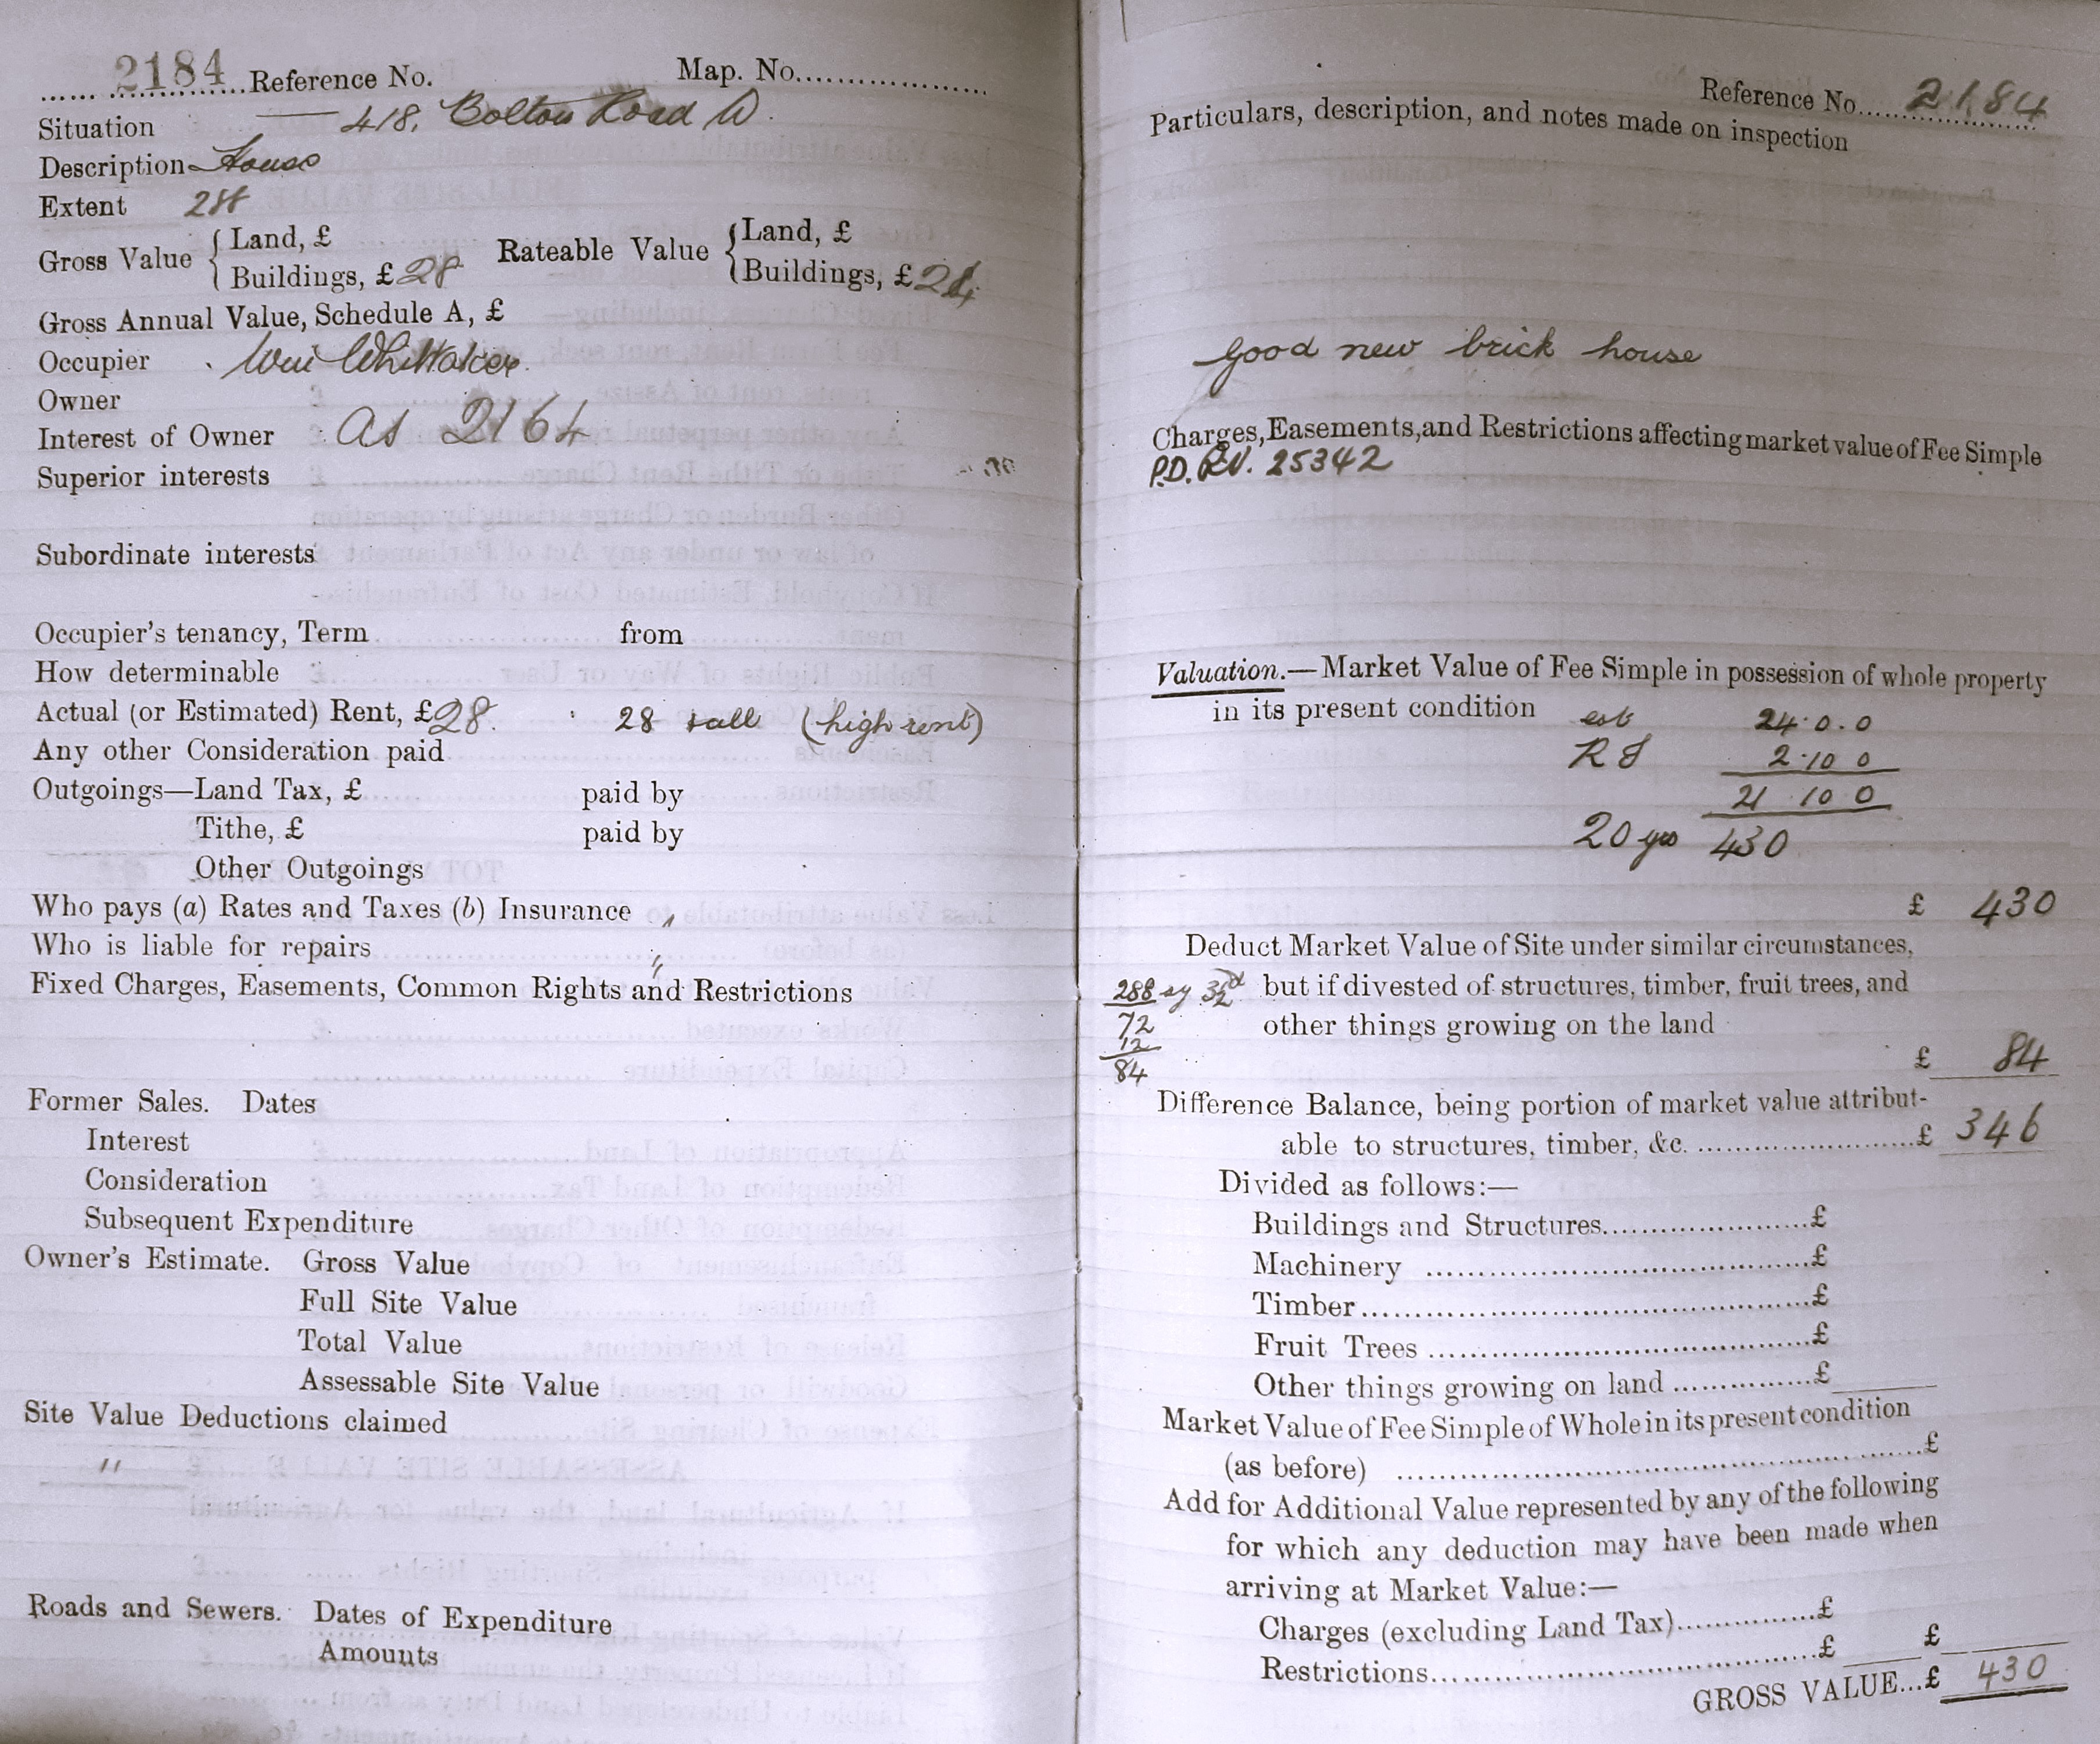 2184 Reference No. Map. No.
Situation — 418, Bolton Road D.
Description House
Extent 288
Gross Value { Land, £ Rateable Value { Land, £
Buildings, £ 28 Buildings, £
Gross Annual Value, Schedule A, £
Occupier Wm Whittaker
Owner
Interest of Owner As 2164
Superior interests
Subordinate interests
Occupier's tenancy, Term from
How determinable
Actual (or Estimated) Rent, £28. 28 (high rent)
Any other Consideration paid
Outgoings—Land Tax, £ paid by
Tithe, £ paid by
Other Outgoings
Who pays (a) Rates and Taxes (b) Insurance
Who is liable for repairs
Fixed Charges, Easements, Common Rights and Restrictions
Former Sales. Dates
Interest
Consideration
Subsequent Expenditure
Owner's Estimate. Gross Value
Full Site Value
Total Value
Assessable Site Value
Site Value Deductions claimed
"
Roads and Sewers. Dates of Expenditure
Amounts
Reference No. 2184
Particulars, description, and notes made on inspection
good new brick house
Charges, Easements, and Restrictions affecting market value of Fee Simple
P.D. RV. 25342
Valuation.—Market Value of Fee Simple in possession of whole property
in its present condition est 24.0.0
2.10 0
21 10 0
20 yrs 430
£ 430
Deduct Market Value of Site under similar circumstances,
288 sy but if divested of structures, timber, fruit trees, and
72 other things growing on the land
12
84 £ 84
Difference Balance, being portion of market value attribut-
able to structures, timber, &c. £ 346
Divided as follows:—
Buildings and Structures £
Machinery £
Timber £
Fruit Trees £
Other things growing on land £
Market Value of Fee Simple of Whole in its present condition
(as before) £
Add for Additional Value represented by any of the following
for which any deduction may have been made when
arriving at Market Value:—
Charges (excluding Land Tax) £
Restrictions £ £
GROSS VALUE...£ 430